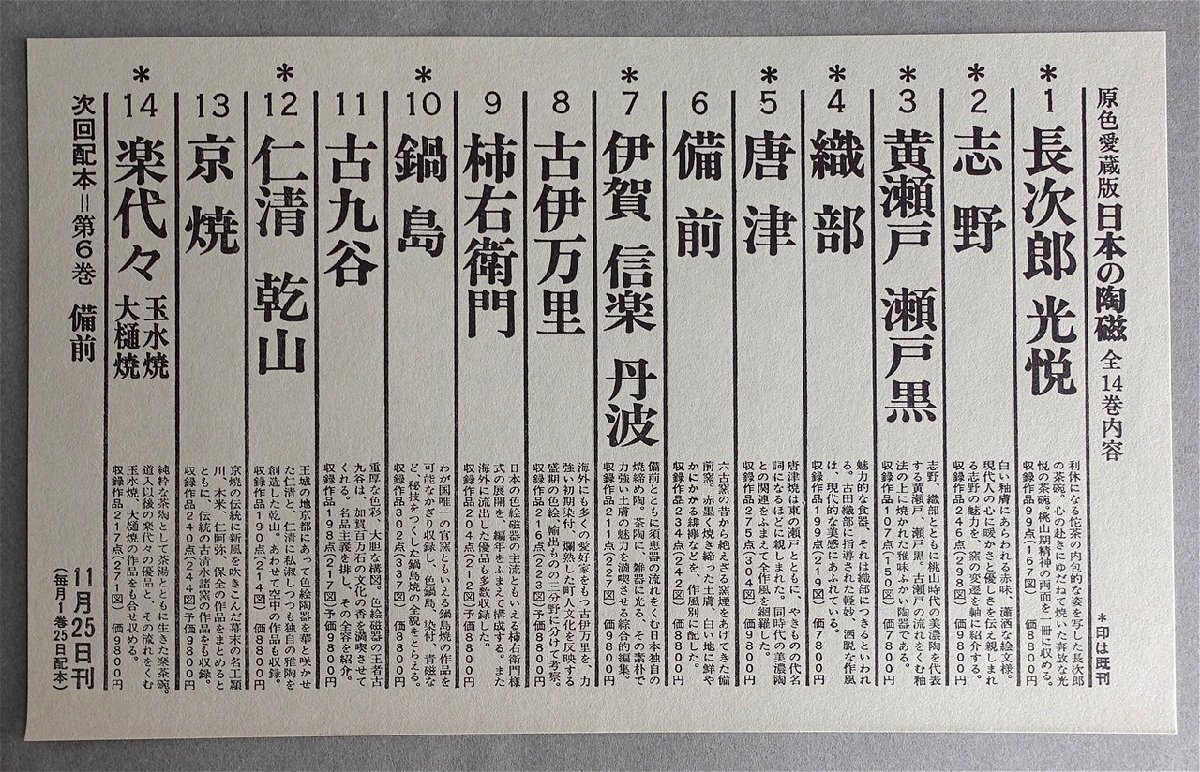 原色愛蔵版 日本の陶磁 全14巻内容 *印は既刊
* 1 長次郎 光悦
利休になる侘茶の内包的な姿を写した長次郎
の茶碗。心の赴きにゆだねて焼いた奔放な光
悦の茶碗。桃山期精神の両面を一冊に収める。
* 2 志野
白い釉膚にあらわれる赤味、瀟洒な絵文様。
現代人の心に暖かさと優しさを伝え親しまれ
る志野の魅力を、窯の変遷を軸に紹介する。
* 3 黄瀬戸 瀬戸黒
志野、織部とともに桃山時代の美濃陶を代表
する黄瀬戸、瀬戸黒。古瀬戸の流れをくむ釉
法の上に焼かれた雅味ふかい陶器である。
* 4 織部
魅力的な食器、それは織部につきるといわれ
る。古田織部に指導された軽妙、洒脱な作風
は、現代的な美感にあふれている。
* 5 唐津
唐津焼は東の瀬戸とともに、やきものの代名
詞になるほどに親しまれた。同時代の美濃陶
との関連をふまえて全作風を網羅した。
収録作品275点(304図) 価9800円
6 備前
六古窯の昔から絶えざる窯煙をあげてきた備
前窯。赤黒く焼き締った土膚、白い地に鮮や
かにかかる緋襷などを、作風別に配した。
収録作品234点(242図) 価9800円
* 7 伊賀 信楽 丹波
備前とともに須恵器の流れをくむ日本独自の
焼締め陶。茶陶に、雑器に光る、その素朴で
力強い土膚の魅力を満喫させる綜合的編集。
8 古伊万里
海外にも多くの愛好家をもつ古伊万里を、力
強い初期染付、爛熟した町人文化を反映する
盛期の色絵、輸出ものの三分野に分けて考察。
9 柿右衛門
日本の色絵磁器の主流ともいえる柿右衛門様
式の展開を、編年をふまえて構成する。また
海外に流出した優品も多数収録した。
収録作品204点(212図) 予価9800円
* 10 鍋島
わが国唯一の官窯ともいえる鍋島焼の作品を
可能なかぎり収録し、色鍋島、染付、青磁な
ど、秘技をつくした鍋島焼の全貌をとらえる。
11 古九谷
重厚な色彩、大胆な構図。色絵磁器の王者古
九谷は、加賀百万石の文化の香を満喫させて
くれる。名品主義を排し、その全容を紹介。
収録作品198点(217図) 予価9800円
* 12 仁清 乾山
王城の地京都にあって色絵陶器を華と咲かせ
た仁清と、仁清に私淑しつつも独自の雅陶を
創造した乾山。あわせて空中の作品も収録。
収録作品190点(214図) 価8800円
13 京焼
京焼の伝統に新風を吹きこんだ幕末の名工穎
川、木米、仁阿弥、保全の作品をまとめると
ともに、伝統の古清水諸窯の作品も収録。
収録作品240点(244図) 予価9300円
* 14 楽代々 玉水焼 大樋焼
純粋な茶陶として茶湯とともに生きた楽茶碗。
道入以後の楽代々の優品と、その流れをくむ
玉水焼、大樋焼の作品をも合せ収める。
収録作品217点(271図) 価9800円
次回配本=第6巻 備前 11月25日刊
(毎月1巻25日配本)